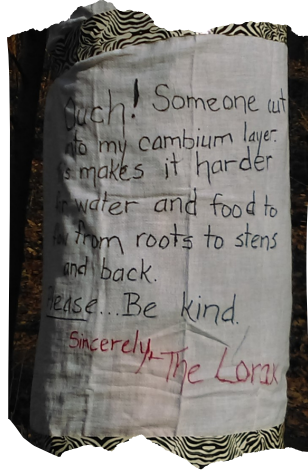 Ouch! Someone cut
into my cambium layer.
makes it harder
water and food to
from roots to stens
and back.
Please... Be kind.
Sincerely,
The Lorax